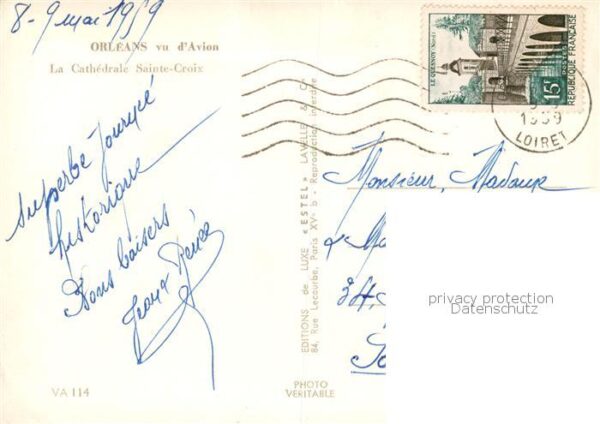 8-9 mai 1959
ORLÉANS vu d'Avion
La Cathédrale Sainte-Croix
Superbe journée
historique
Bons baisers
Renée
VA 114
EDITIONS de LUXE « ESTEL » LAVELLE & Cie
84, Rue Lecourbe, Paris XVe - Reproduction interdite
PHOTO
VERITABLE
LE QUESNOY (Nord)
15F
POSTES
REPUBLIQUE FRANÇAISE
1959
LOIRET
Monsieur, Madame
&
34,
privacy protection
Datenschutz